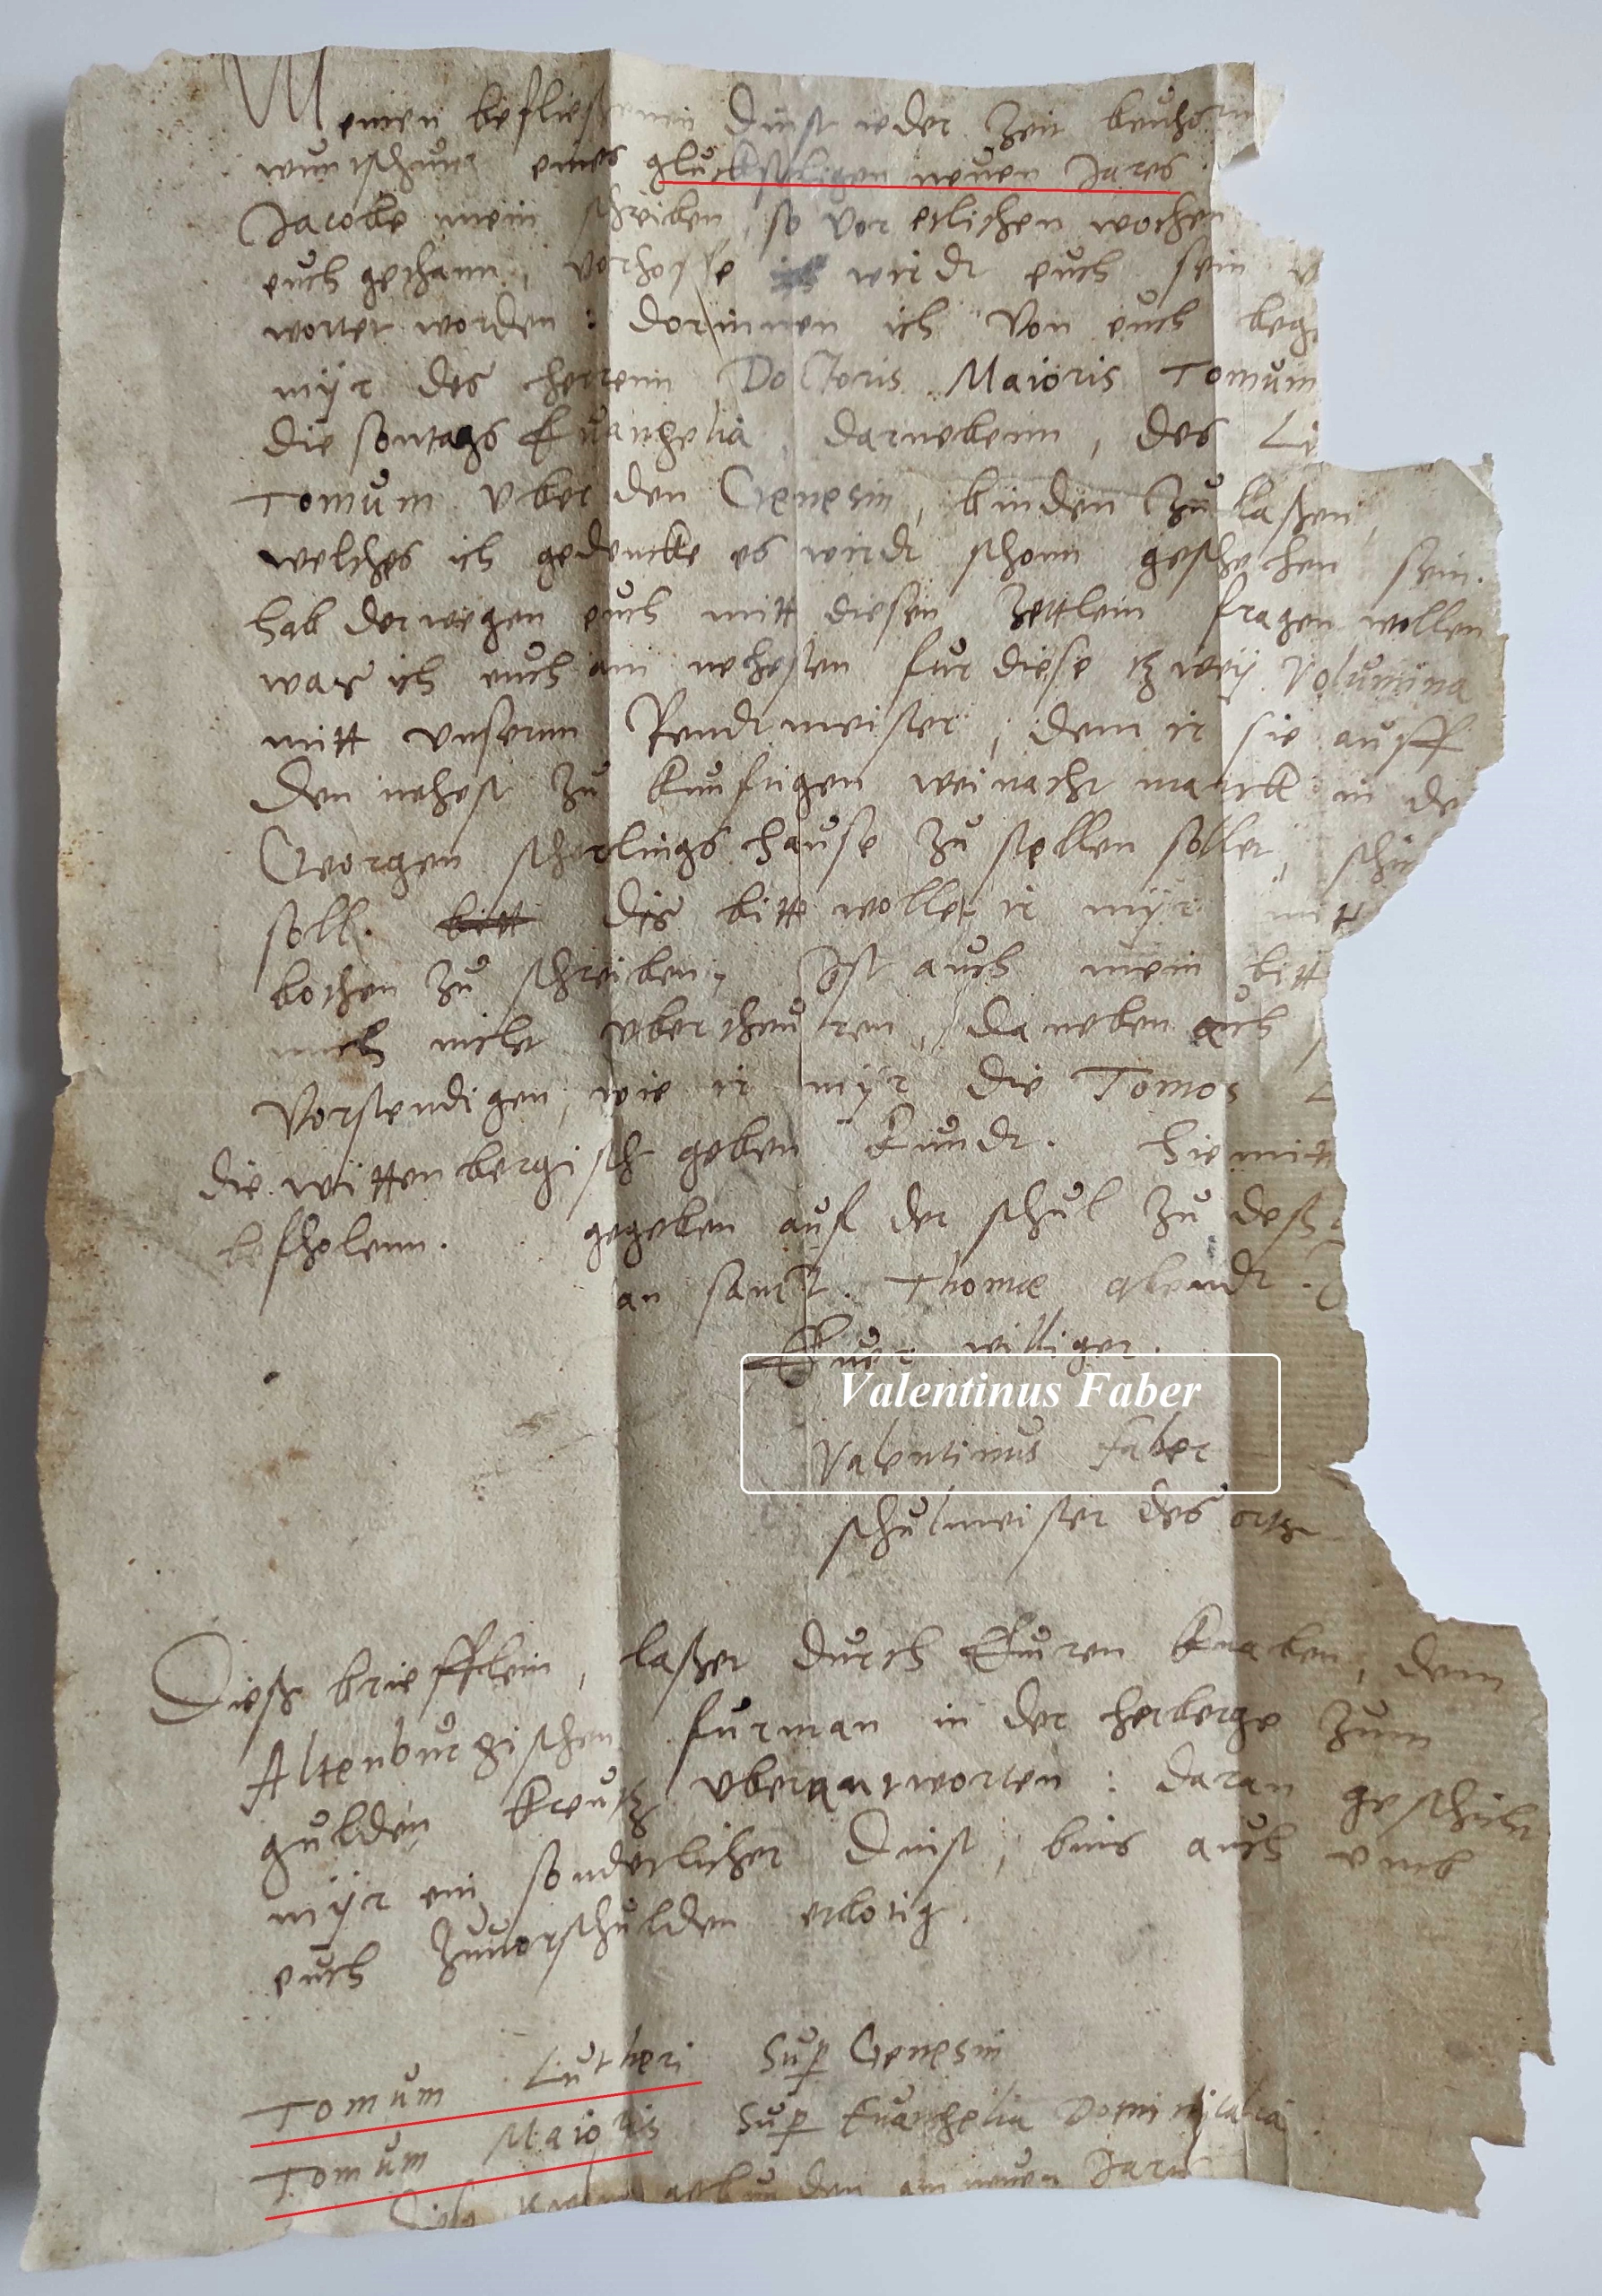 Meinen befliessenen dinst ieder zeit beuhorn
wuntschunt eines gluckseligen neuen Jares
Jacobe mein schreiben, so vor etlichen wochen
euch gethann, vorhoffe ich wirdt euch sein
wortet worden: dorinnen ich von euch beg
myr des herrenn Doctoris Maioris Tomum
die sontags Euangelia, darnebenn, des Lu
Tomum vber den Genesin, binden zu laßen,
welches ich gedencke es wirdt schonn geschehen sein.
hab derwegen euch mitt diesen zettlein fragen wollen
was ich euch am nehesten fur diese tzwey Volumina
mitt vnserm Rendtmeister, dem ir sie auff
den nehest zu kunftigen weinacht marckt in de
Georgen scherlings hause zu stellen sollet, schi
soll. bitt dis bitt wollet ir myr mitt
bothen zu schreiben. Ist auch mein bitt
mich nicht vbertheuren, daneben auch
vorstendigen, wie ir myr die Tomos L
die wittenbergisch geben kundt. hiemitt
befholenn. gegeben auf der schul zu
an sanct. Thomae abendt.
Euer williger.
Valentinus Faber
Valentinus Faber
schulmeister des orts
Dieß briefflein, laßet durch Euren knaben, dem
Altenburgischen furman in der herberge zum
gulden kreutz vberantworten: daran geschicht
myr ein sonderlicher dinst, bins auch vmb
euch zuuorschulden erbotig.
Tomum Lutheri Sup Genesin
Tomum Maioris Sup Euangelia Dominicalia
gebunden am neuen Jare